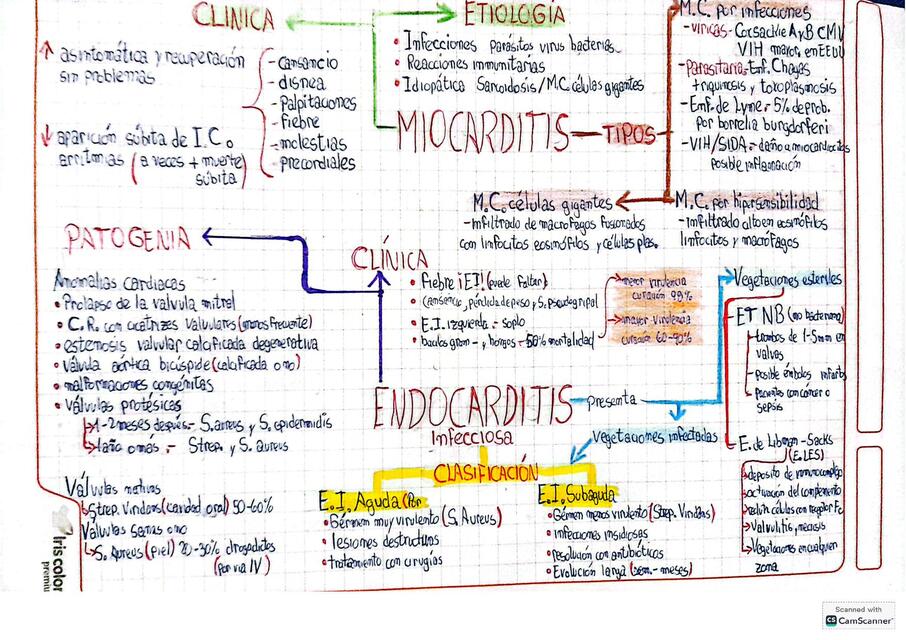 CLINICA
↑ asintomática y recuperación
sin problemas
↓ aparición súbita de I.C o
arritmias (a veces + muerte)
súbita
- Cansancio
- disnea
- Palpitaciones
- fiebre
- molestias
- precordiales
ETIOLOGÍA
• Infecciones parásitos virus bacterias
• Reacciones inmunitarias
• Idiopática Sarcoidosis / M.C células gigantes
MIOCARDITIS
TIPOS
M.C. por infecciones
- víricas.- Corsackie A y B CMV
VIH mayor en EEUU
- Parasitaria.- Enf. Chagas
triquinosis y toxoplasmosis
- Enf. de Lyme.- 5% de prob.
por borrelia burgdorferi
- VIH/SIDA.- daño a miocardiocitos
posible inflamación
M.C. células gigantes
- infiltrado de macrófagos fusionados
con linfocitos eosinófilos y células plas.
M.C. por hipersensibilidad
- infiltrado eosinófilos
linfocitos y macrófagos
PATOGENIA
Anomalías cardiacas
• Prolapso de la valvula mitral
• C.R. con cicatrices valvulares (menos frecuente)
• estenosis valvular calcificada degenerativa
• Válvula aórtica bicúspide (calcificada o no)
• malformaciones congénitas
• Válvulas protésicas
1-2 meses después.- S. aureus y S. epidermidis
1 año o más.- Strep. y S. aureus
Válvulas nativas
Strep. Viridans (cavidad oral) 50-60%
Válvulas sanas o no
S. Aureus (piel) 20-30% drogadictos
(por vía IV)
CLÍNICA
• Fiebre ¡EI! (puede faltar)
• Cansancio, pérdida de peso y S. pseudogripal
• E.I. izquierda.- soplo
• bacilos gram -, hongos.- 50% mortalidad
menor virulencia
curación 99%
mayor virulencia
curación 60-90%
ENDOCARDITIS
Infecciosa
Presenta
Vegetaciones estériles
ETNB (no bacteriana)
trombos de 1-5mm en
valvas
posible émbolos infartos
pacientes con cáncer o
sepsis
E. de Libman-Sacks
(E. LES)
deposito de inmunocomplejo
activación del complemento
reclut. células con receptor Fc
Valvulitis, necrosis
Vegetaciones en cualquier
zona
Vegetaciones infectadas
CLASIFICACIÓN
E.I. Aguda (Por
• Gérmen muy virulento (S. Aureus)
• lesiones destructivas
• tratamiento con cirugías
E.I. Subaguda
• Gérmen menos virulento (Strep. Viridans)
• infecciones insidiosas
• resolución con antibióticos
• Evolución larga (sem.- meses)
Iris color
premium
Scanned with
CS CamScanner